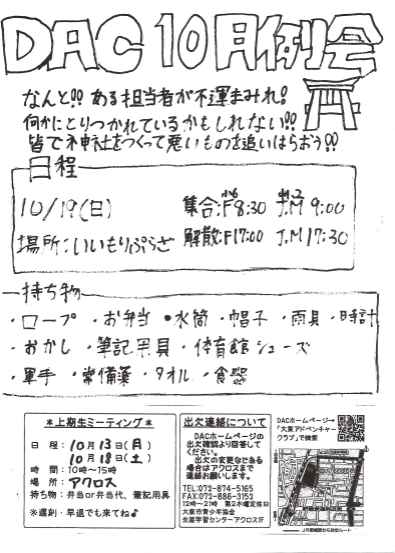 DAC 10月例会
なんと!! ある担当者が不運まみれ!
何かにとりつかれているかもしれない!!
皆で神社をつくって悪いものを追いはらおう!!
日程
10/19(日) 集合:F8:30 J.M 9:00
場所:いいもりぷらざ 解散:F17:00 J.M17:30
持ち物
・ロープ ・お弁当 ・水筒 ・帽子 ・雨具 ・時計
・おかし ・筆記用具 ・体育館シューズ
・軍手 ・常備薬 ・タオル ・食器
＊上期生ミーティング＊
日 程:10月13日(月)
10月18日(土)
時 間:10時～15時
場 所:アクロス
持ち物:弁当or弁当代、筆記用具
※遅刻・早退でも来てね♪
出欠連絡について
DACホームページの
出欠確認より回答して
ください。
出欠の変更などある
場合はアクロスまで
連絡お願いします。
TEL:072-874-5165
FAX:072-886-3152
12時～21時 第2木曜定休日
大東市青少年協会
生涯学習センターアクロス1F
DACホームページ→
「大東アドベンチャー
クラブ」で検索